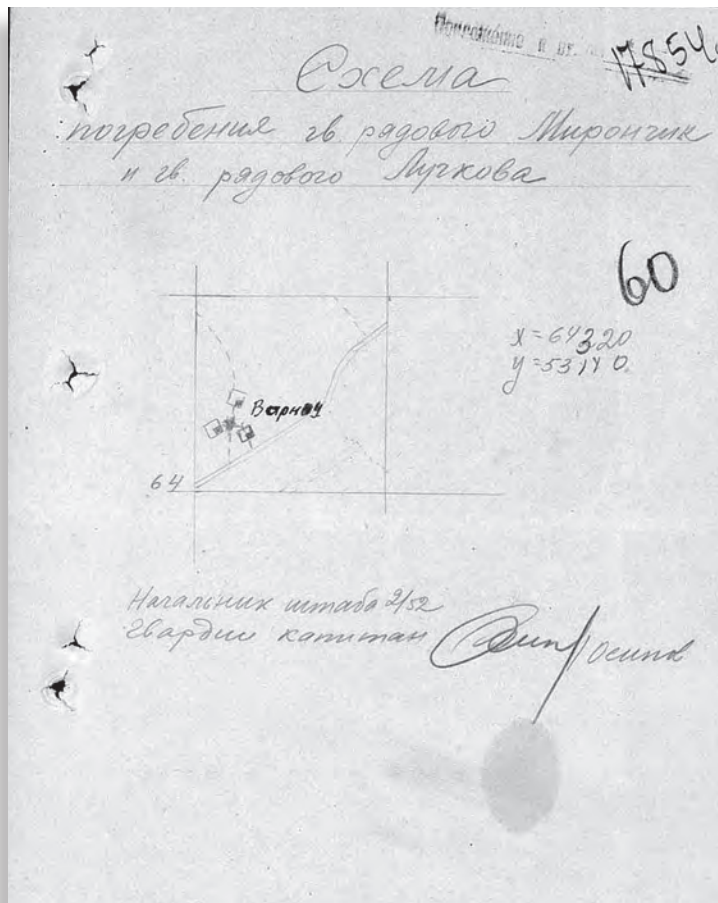 Приложение к вх.
17854
Схема
погребения гв. рядового Мирончик
и гв. рядового Лучкова
60
x=64320
y=53140
Варнау
64
Начальник штаба 2/52
гвардии капитан Осипов